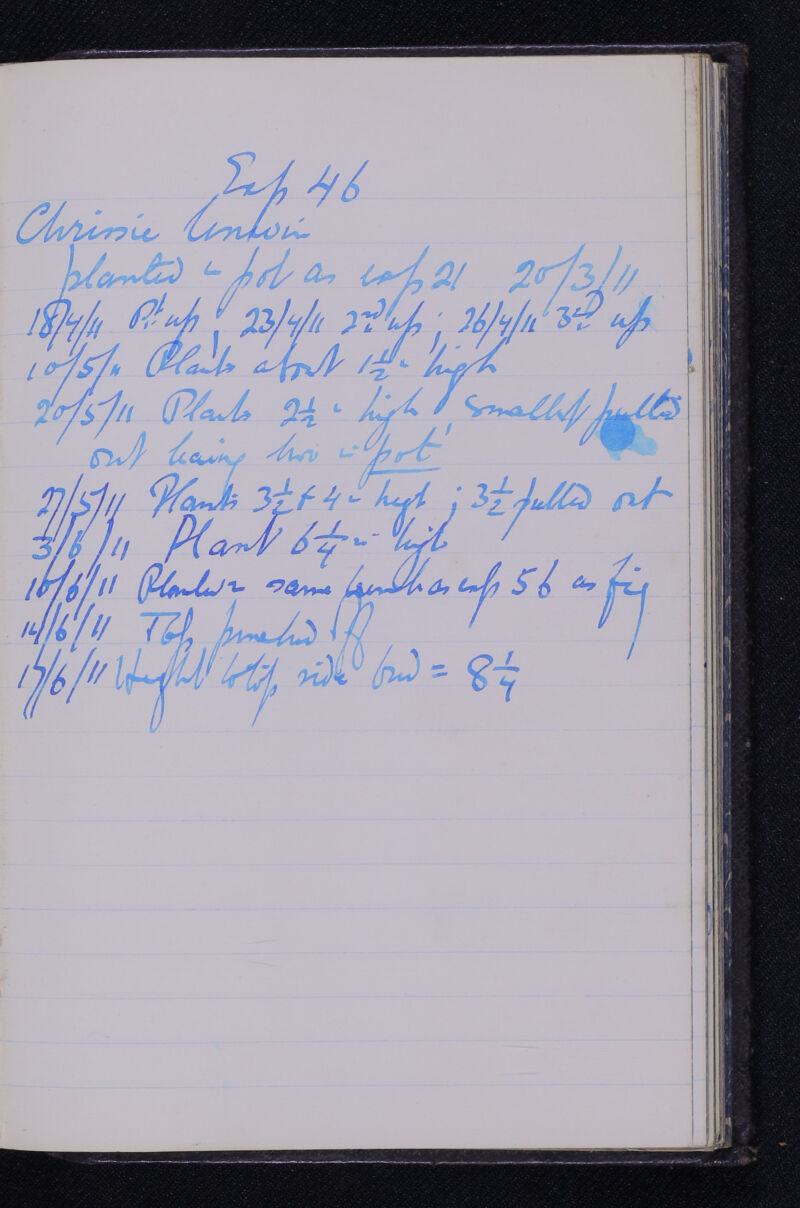 Exp 46
Chrissie Unwin
planted in pot as exp 21 20/3/11
18/4/11 Pt up; 23/4/11 2nd up; 26/4/11 3rd up
10/5/11 Plants about 1½" high
20/5/11 Plants 2½" high, smallest pulled
out leaving two in pot
27/5/11 Plants 3½ & 4" high; 3½ pulled out
3/6/11 Plant 6¼" high
10/6/11 Planted in same as exp 56 as fig
14/6/11 Top pinched off
17/6/11 Height to top side bud = 8¼